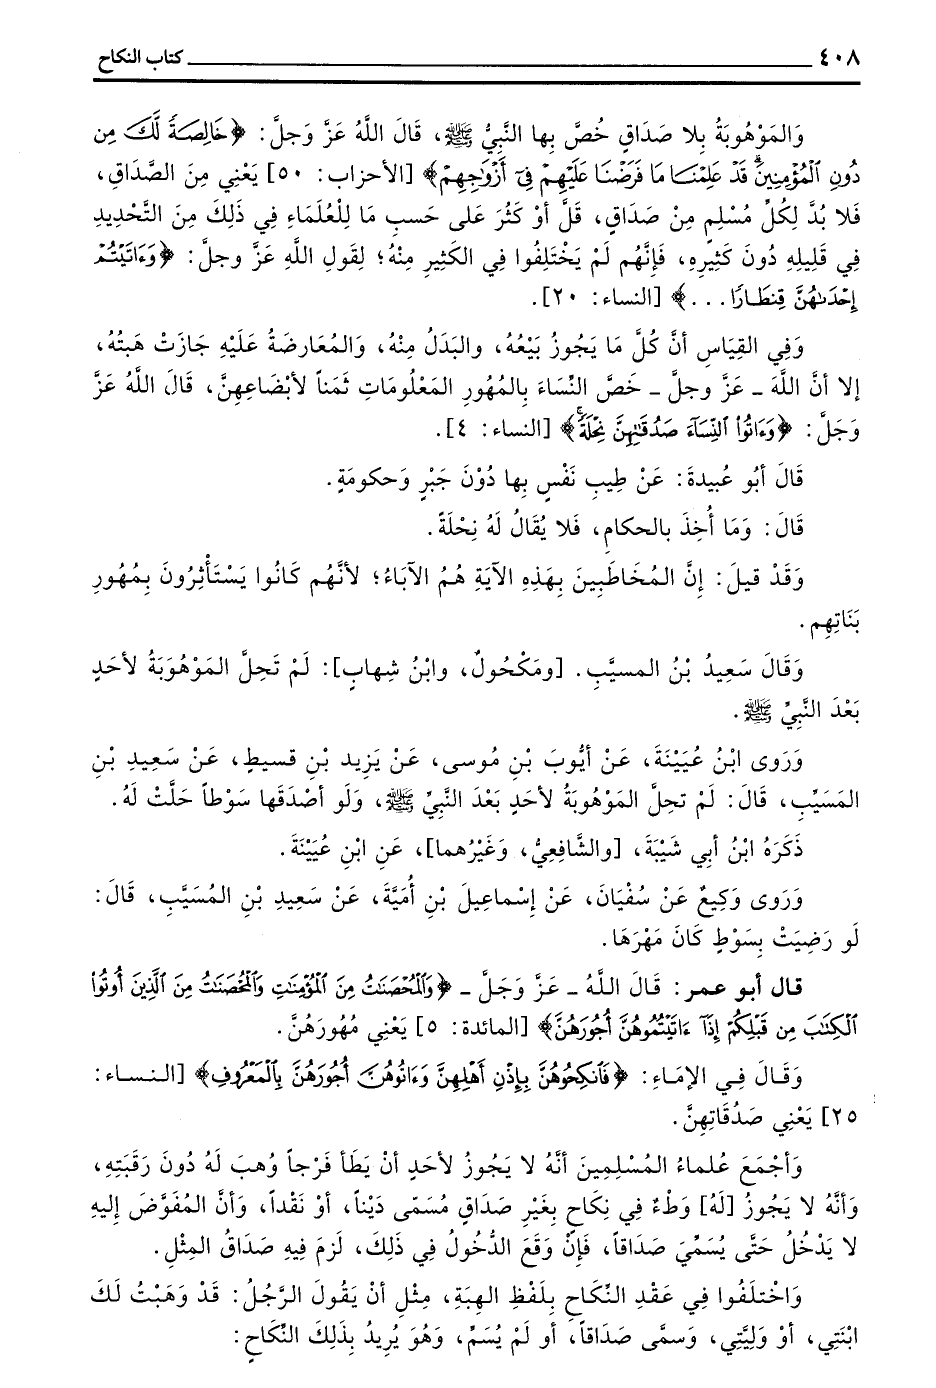 ٤٠٨ كتاب النكاح
وَالمَوْهُوبَةُ بِلا صَدَاقٍ خُصَّ بِها النَّبِيُّ ﷺ، قَالَ اللَّهُ عَزَّ وَجلَّ: ﴿خَالِصَةً لَّكَ مِن
دُونِ ٱلْمُؤْمِنِينَۗ قَدْ عَلِمْنَا مَا فَرَضْنَا عَلَيْهِمْ فِىٓ أَزْوَٰجِهِمْ﴾ [الأحزاب: ٥٠] يَعْنِي مِنَ الصَّدَاقِ،
فَلا بُدَّ لِكُلِّ مُسْلِمٍ مِنْ صَدَاقٍ، قَلَّ أوْ كَثُرَ عَلى حَسبِ مَا لِلْعُلَمَاءِ فِي ذَلِكَ مِنَ التَّحْدِيدِ
فِي قَلِيلِهِ دُونَ كَثِيرِهِ، فَإنَّهُم لَمْ يَخْتَلِفُوا فِي الكَثِيرِ مِنْهُ؛ لِقَولِ اللَّهِ عَزَّ وجلَّ: ﴿وَءَاتَيْتُمْ
إِحْدَىٰهُنَّ قِنطَارًا...﴾ [النساء: ٢٠].
وَفِي القِيَاسِ أنَّ كُلَّ مَا يَجُوزُ بَيْعُهُ، والبَدَلُ مِنْهُ، وَالمُعَارضَةُ عَلَيْهِ جَازَتْ هَبتُهُ،
إلا أنَّ اللَّهَ - عَزَّ وجلَّ - خَصَّ النِّسَاءَ بِالمُهُورِ المَعْلُومَاتِ ثَمَناً لأبْضَاعِهِنَّ، قَالَ اللَّهُ عَزَّ
وَجَلَّ: ﴿وَءَاتُوا۟ ٱلنِّسَآءَ صَدُقَـٰتِهِنَّ نِحْلَةًۚ﴾ [النساء: ٤].
قَالَ أبُو عُبيدةَ: عَنْ طِيبِ نَفْسٍ بِها دُوْنَ جَبْرٍ وَحكومَةٍ.
قَالَ: وَمَا أُخِذَ بالحكامِ، فَلا يُقَالُ لَهُ نِحْلَةً.
وَقَدْ قيلَ: إنَّ المُخَاطَبِينَ بِهَذِهِ الآيَةِ هُمُ الآبَاءُ؛ لأنَّهُم كَانُوا يَسْتَأْثِرُونَ بِمُهُورِ
بَنَاتِهِم.
وَقَالَ سَعِيدُ بْنُ المسيَّبِ. [ومَكْحُولٌ، وابْنُ شِهابٍ]: لَمْ تَحِلَّ المَوْهُوبَةُ لأحَدٍ
بَعْدَ النَّبِيِّ ﷺ.
وَرَوى ابْنُ عُيَيْنَةَ، عَنْ أيُّوبَ بْنِ مُوسى، عَنْ يَزِيد بْنِ قسيطٍ، عَنْ سَعِيدِ بْنِ
المَسَيِّبِ، قَالَ: لَمْ تحِلَّ المَوْهُوبَةُ لأحدٍ بَعْدَ النَّبِيِّ ﷺ، وَلَو أصْدَقَها سَوْطاً حَلَّتْ لَهُ.
ذَكَرَهُ ابْنُ أبي شَيْبَةَ، [والشَّافِعيُّ، وَغَيْرُهما]، عَنِ ابْنِ عُيَيْنَةَ.
وَرَوى وَكِيعٌ عَنْ سُفْيَانَ، عَنْ إسْماعِيلَ بْنِ أُمَيَّةَ، عَنْ سَعِيدِ بْنِ المُسَيَّبِ، قَالَ:
لَو رَضِيَتْ بِسَوْطٍ كَانَ مَهْرَهَا.
قال أبو عمر: قَالَ اللَّهُ - عَزَّ وَجَلَّ - ﴿وَٱلْمُحْصَنَـٰتُ مِنَ ٱلْمُؤْمِنَـٰتِ وَٱلْمُحْصَنَـٰتُ مِنَ ٱلَّذِينَ أُوتُوا۟
ٱلْكِتَـٰبَ مِن قَبْلِكُمْ إِذَآ ءَاتَيْتُمُوهُنَّ أُجُورَهُنَّ﴾ [المائدة: ٥] يَعْنِي مُهُورَهُنَّ.
وَقَالَ فِي الإمَاءِ: ﴿فَٱنكِحُوهُنَّ بِإِذْنِ أَهْلِهِنَّ وَءَاتُوهُنَّ أُجُورَهُنَّ بِٱلْمَعْرُوفِ﴾ [النساء:
٢٥] يَعْنِي صَدُقَاتِهِنَّ.
وَأجْمَعَ عُلماءُ المُسْلِمِينَ أنَّهُ لا يَجُوزُ لأحَدٍ أنْ يَطَأ فَرْجاً وُهبَ لَهُ دُونَ رَقَبَتِهِ،
وَأنَّهُ لا يَجُوزُ [لَهُ] وَطْءٌ فِي نِكَاحٍ بِغَيْرِ صَدَاقٍ مُسَمّى دَيْناً، أوْ نَقْداً، وَأنَّ المُفَوَّضَ إليهِ
لا يَدْخُلُ حَتَّى يُسَمِّيَ صَدَاقاً، فَإنْ وَقَعَ الدُّخُولُ فِي ذَلِكَ، لَزِمَ فِيهِ صَدَاقُ المِثْلِ.
وَاخْتلَفُوا فِي عَقْدِ النِّكَاحِ بِلَفْظِ الهِبَةِ، مِثْلِ أنْ يَقُولَ الرَّجُلُ: قَدْ وَهَبْتُ لَكَ
ابْنَتِي، أوْ وَلِيَّتِي، وَسمَّى صَدَاقاً، أو لَمْ يُسَمِّ، وَهُوَ يُرِيدُ بِذَلِكَ النِّكَاحِ: